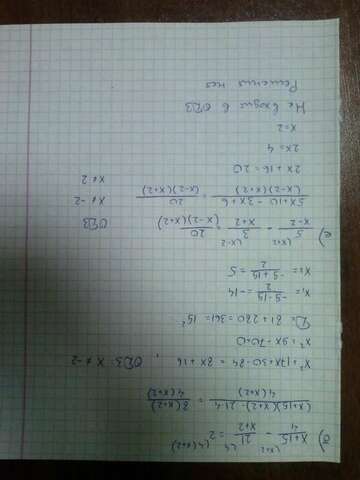 д) (x+15)/4 - 21/(x+2) = 2
((x+15)(x+2) - 21·4)/(4(x+2)) = 8(x+2)/(4(x+2))
x²+17x+30-84 = 8x+16, ОДЗ: x ≠ -2
x²+9x-70=0
D = 81+280=361=15²
x₁ = (-9-15)/2 = -14
x₂ = (-9+15)/2 = 5
е) 5/(x-2) - 3/(x+2) = 20/((x-2)(x+2)) ОДЗ
(5x+10-3x+6)/((x-2)(x+2)) = 20/((x-2)(x+2)) x ≠ -2
x ≠ 2
2x+16=20
2x=4
x=2
Не входит в ОДЗ
Решения нет